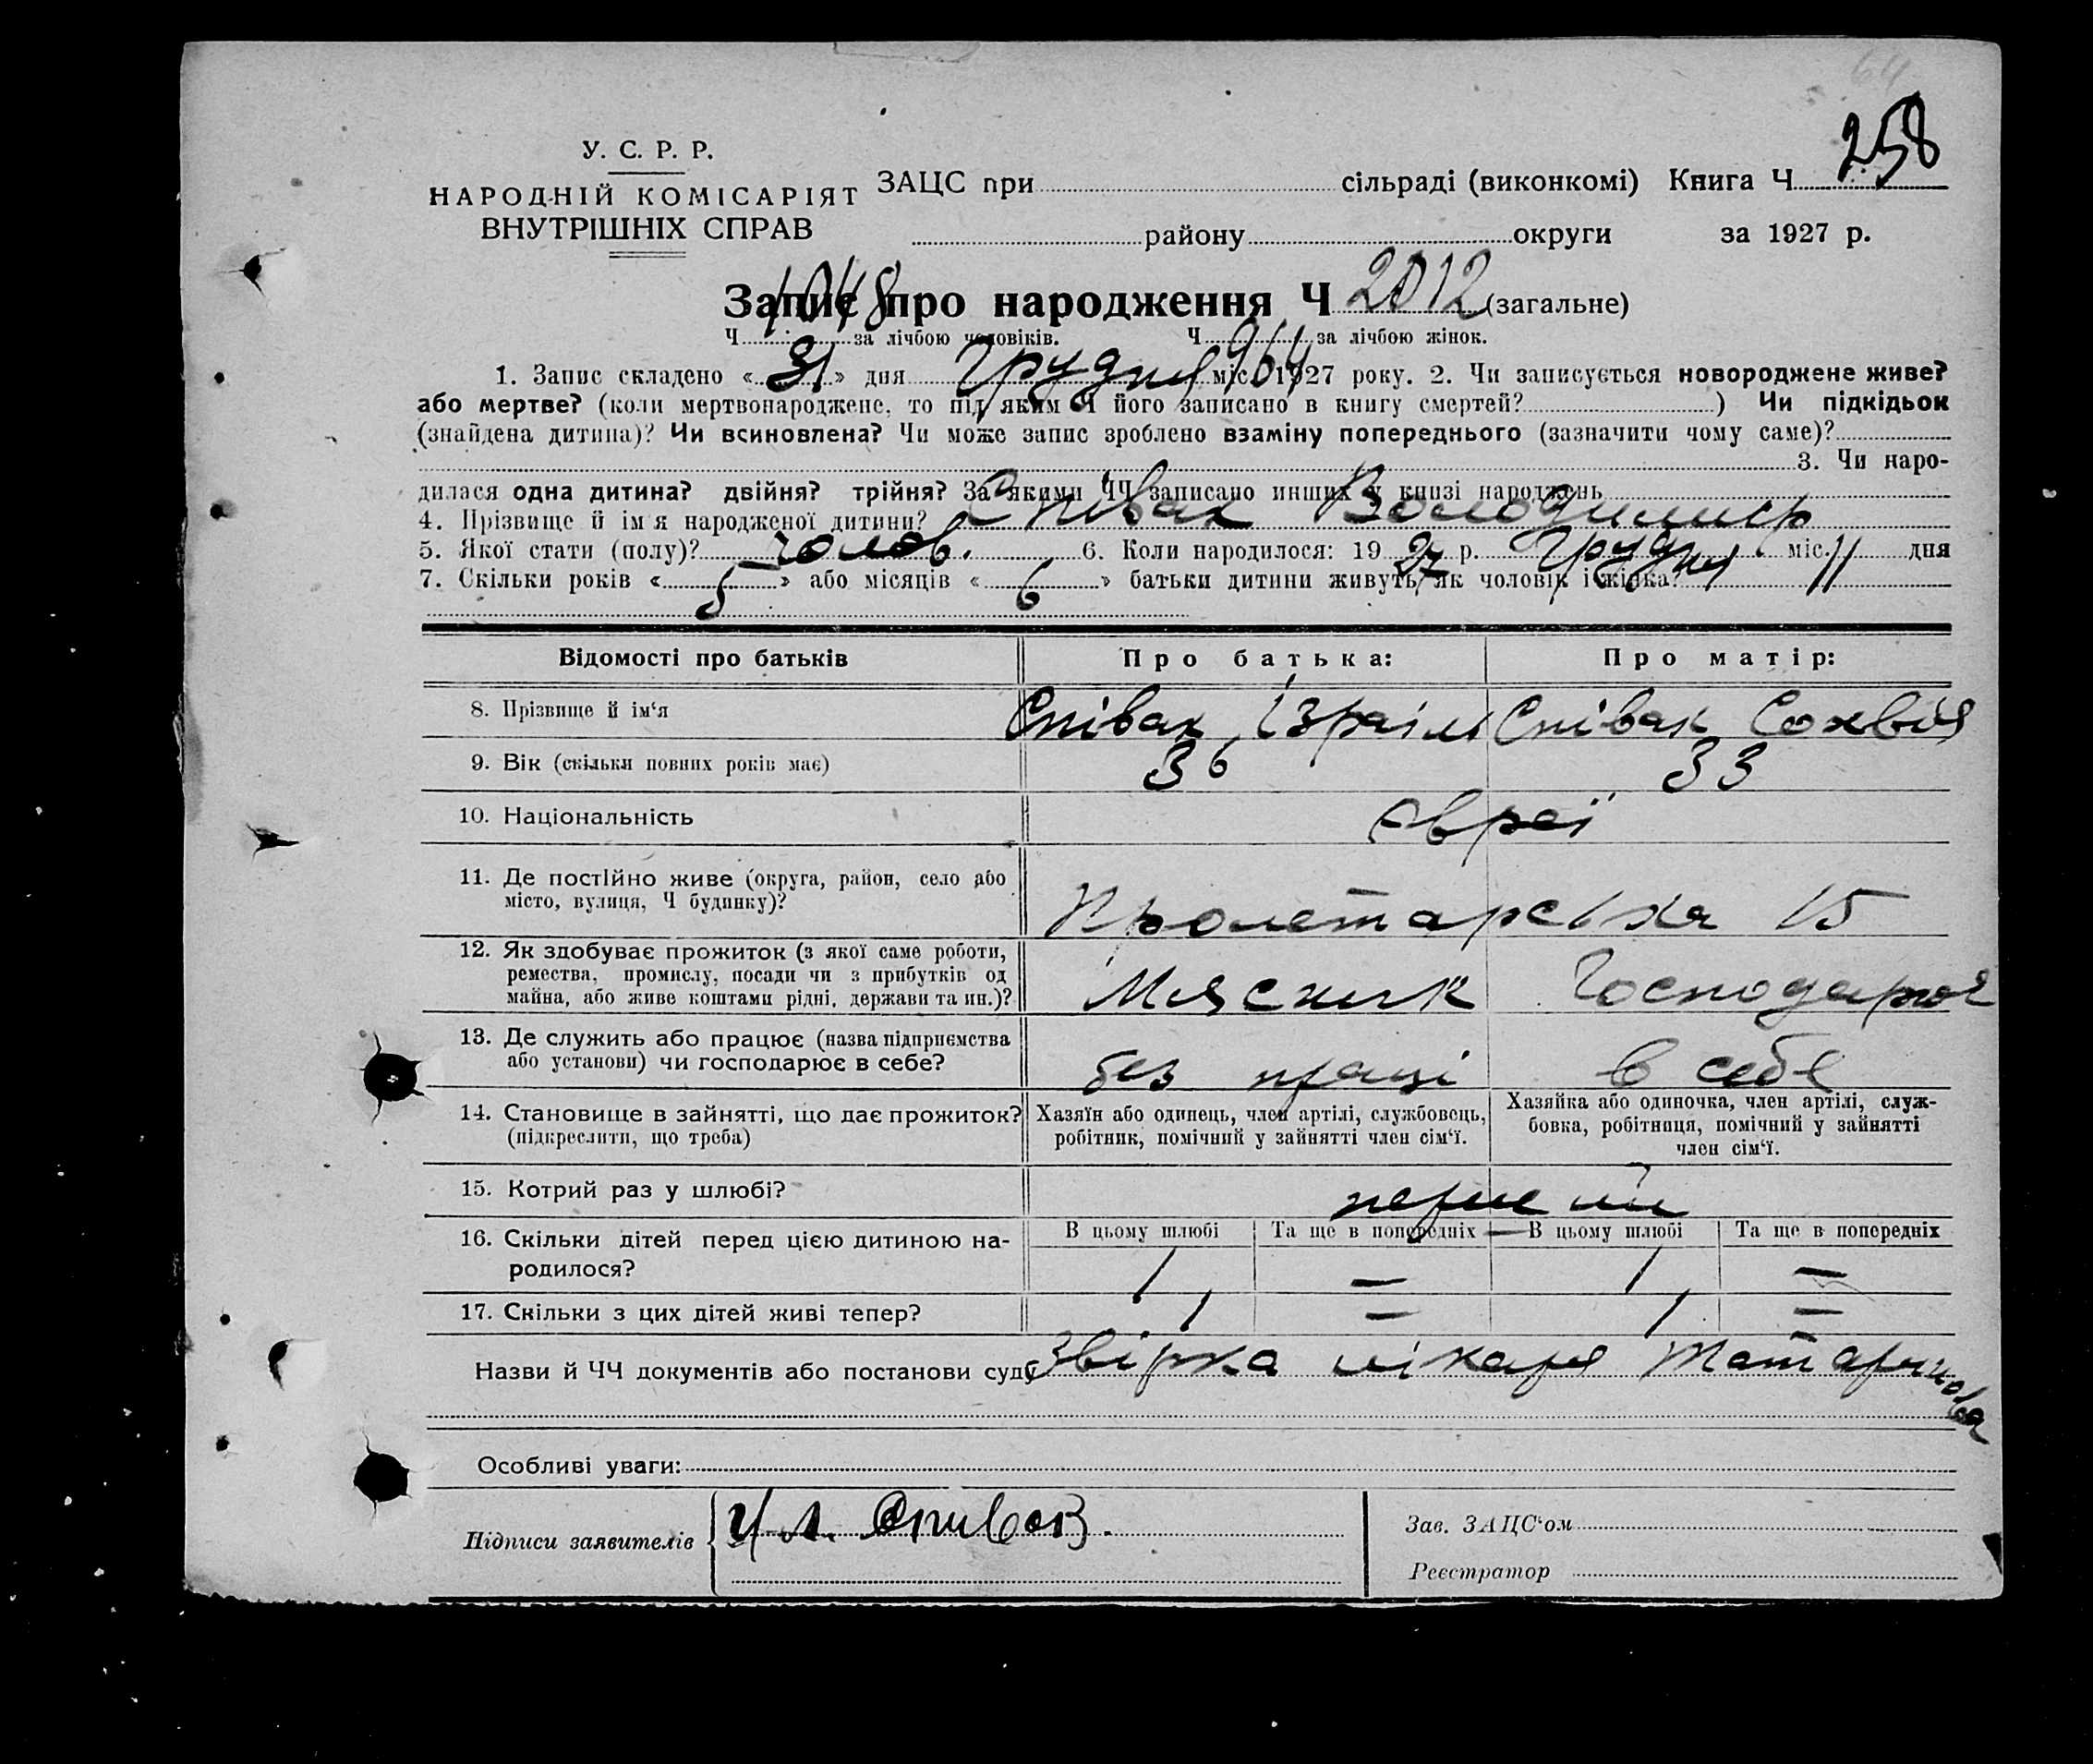 64
258
У. С. Р. Р.
НАРОДНІЙ КОМІСАРІЯТ
ВНУТРІШНІХ СПРАВ
ЗАЦС при сільраді (виконкомі) Книга Ч
району округи за 1927 р.
Запис про народження Ч 2012 (загальне)
Ч 1048 за лічбою чоловіків. Ч 964 за лічбою жінок.
1. Запис складено «31» дня Грудня міс. 1927 року. 2. Чи записується новороджене живе?
або мертве? (коли мертвонароджене, то під яким Ч його записано в книгу смертей? ) Чи підкідьок
(знайдена дитина)? Чи всиновлена? Чи може запис зроблено взаміну попереднього (зазначити чому саме)?
3. Чи наро-
дилася одна дитина? двійня? трійня? За якими ЧЧ записано инших у книзі народжень
4. Прізвище й ім я народженої дитини? Співак Володимир
5. Якої стати (полу)? чолов. 6. Коли народилося: 19 27 р. Грудня міс. 11 дня
7. Скільки років « 5 » або місяців « 6 » батьки дитини живуть, як чоловік і жінка?
Відомості про батьків Про батька: Про матір:
8. Прізвище й ім‘я Співак Ізраіль Співак Сохвія
9. Вік (скільки повних років має) 36 33
10. Національність Євреї
11. Де постійно живе (округа, район, село або
місто, вулиця, Ч будинку)? Пролетарська 15
12. Як здобуває прожиток (з якої саме роботи,
ремества, промислу, посади чи з прибутків од
майна, або живе коштами рідні, держави та ин.)? Мясник Господарює
13. Де служить або працює (назва підприємства
або установи) чи господарює в себе? без праці в себе
14. Становище в зайнятті, що дає прожиток?
(підкреслити, що треба)
Хазяїн або одинець, член артілі, службовець,
робітник, помічний у зайнятті член сім‘ї.
Хазяйка або одиночка, член артілі, служ-
бовка, робітниця, помічний у зайнятті
член сім‘ї.
15. Котрий раз у шлюбі? перший
16. Скільки дітей перед цією дитиною на-
родилося?
В цьому шлюбі Та ще в попередніх В цьому шлюбі Та ще в попередніх
1 — 1 —
17. Скільки з цих дітей живі тепер? 1 — 1 —
Назви й ЧЧ документів або постанови суду Звірка лікаря Татаринова
Особливі уваги:
Підписи заявителів Спивак.
Зав. ЗАЦС‘ом
Реєстратор